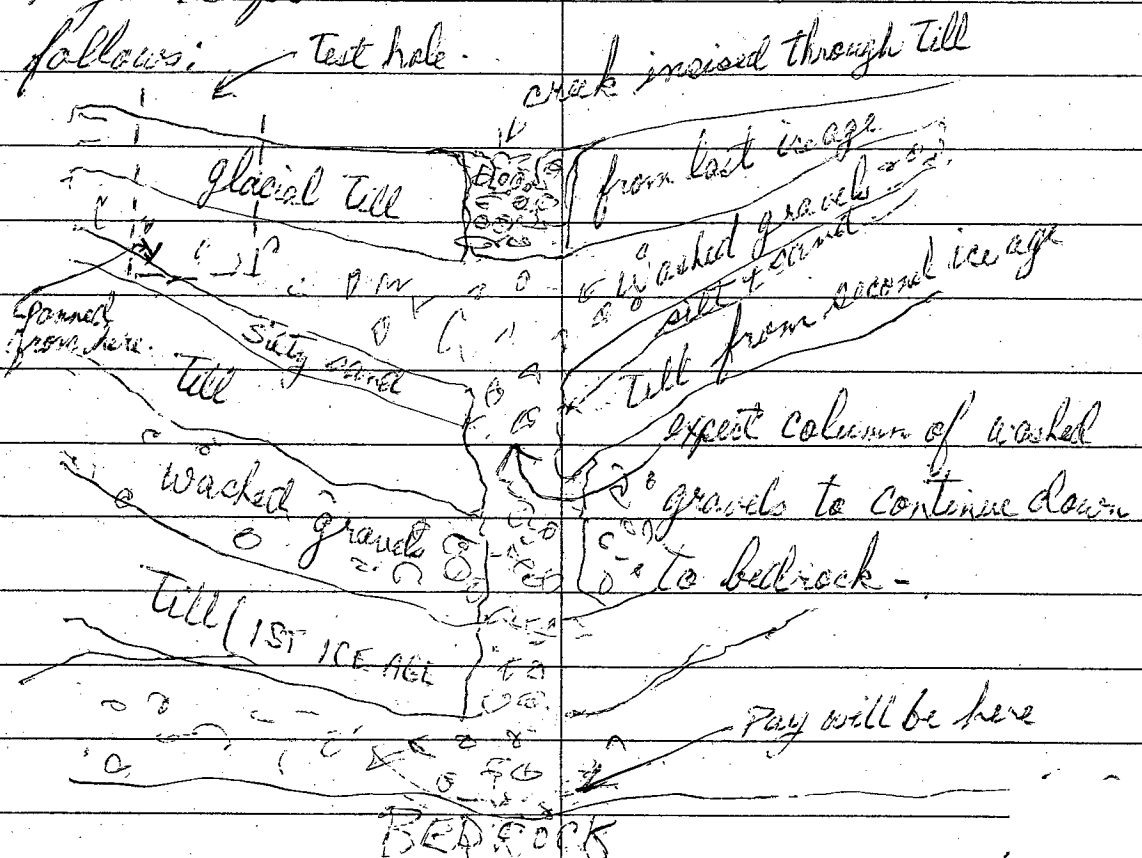 follows:
Test hole.
creek incised through Till
glacial Till
from last ice age
Washed gravels
silt & sand
Till from second ice age
panned
from here.
Silty sand
Till
expect column of washed
gravels to continue down
to bedrock -
Washed
gravels
Till (1ST ICE AGE
Pay will be here
BEDROCK